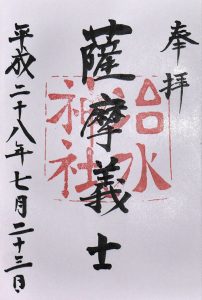 奉拝
薩摩義士
治水
神社
平成二十八年七月二十三日